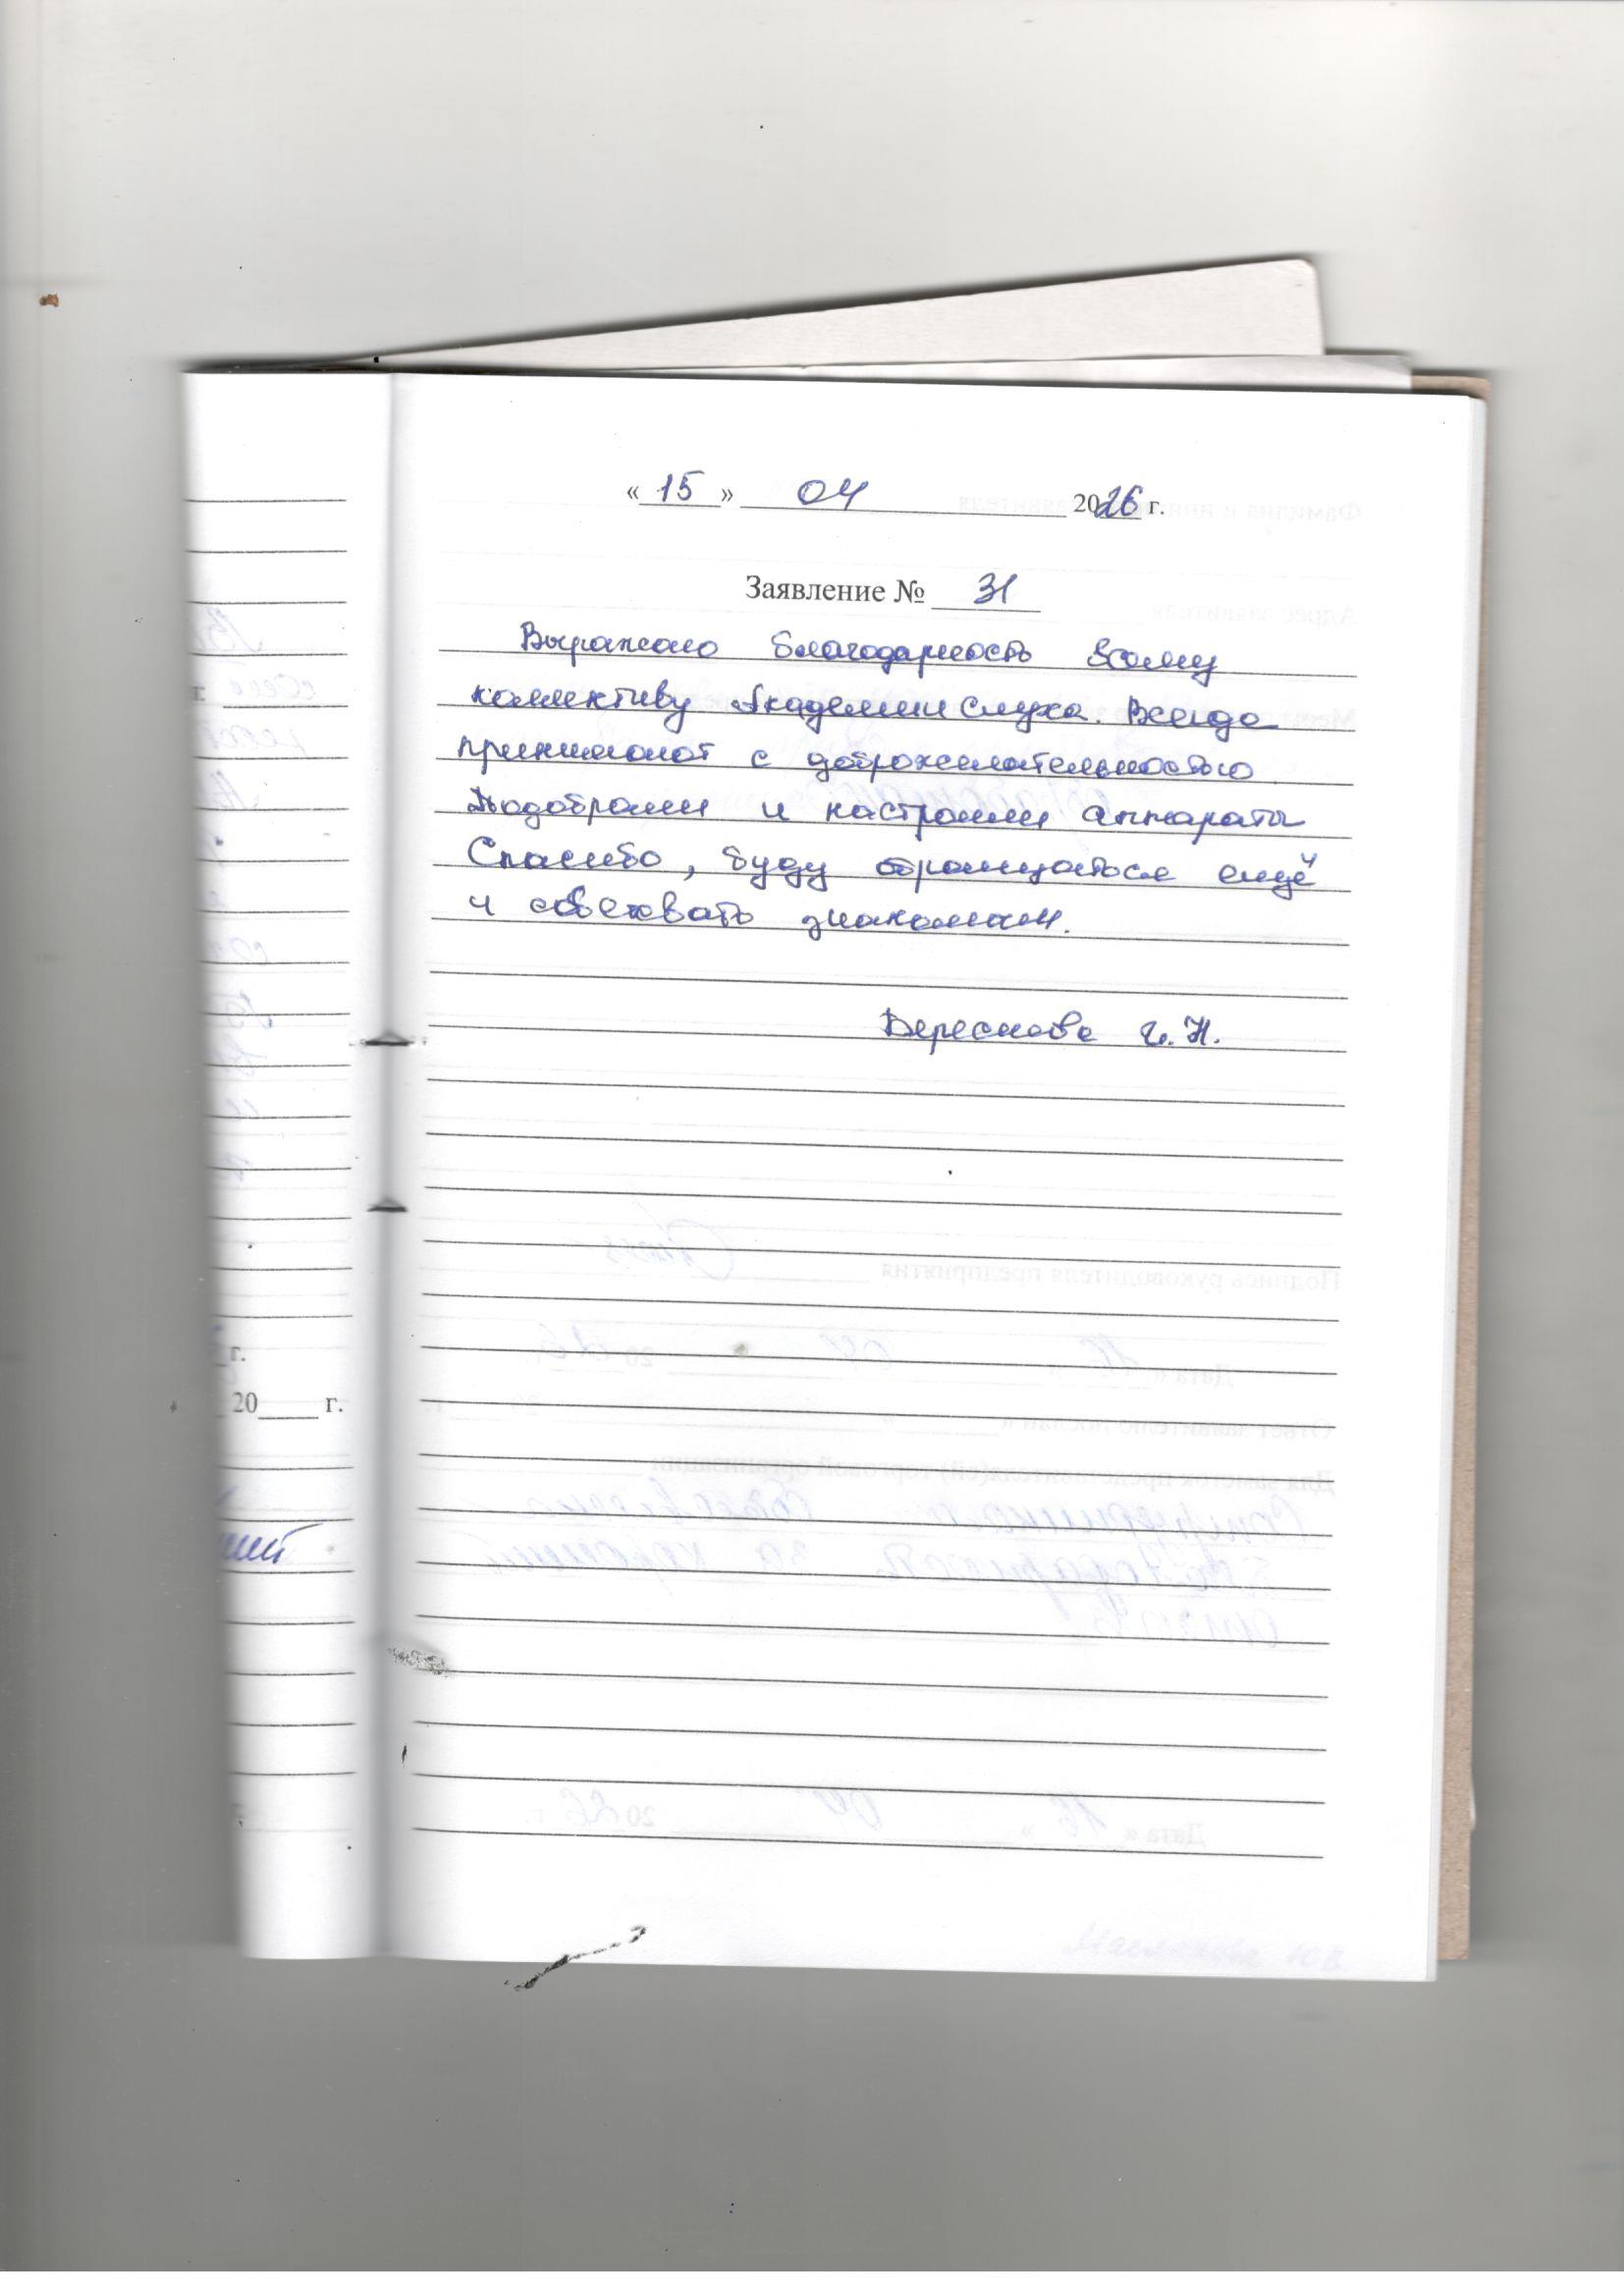 « 15 » 04 2026 г.
Заявление № 31
Выражаю благодарность всему
коллективу Академии Слуха. Всегда
принимают с доброжелательностью
Подобрали и настроили аппараты
Спасибо, буду обращаться ещё
и советовать знакомым.
г.
г.
20 г.